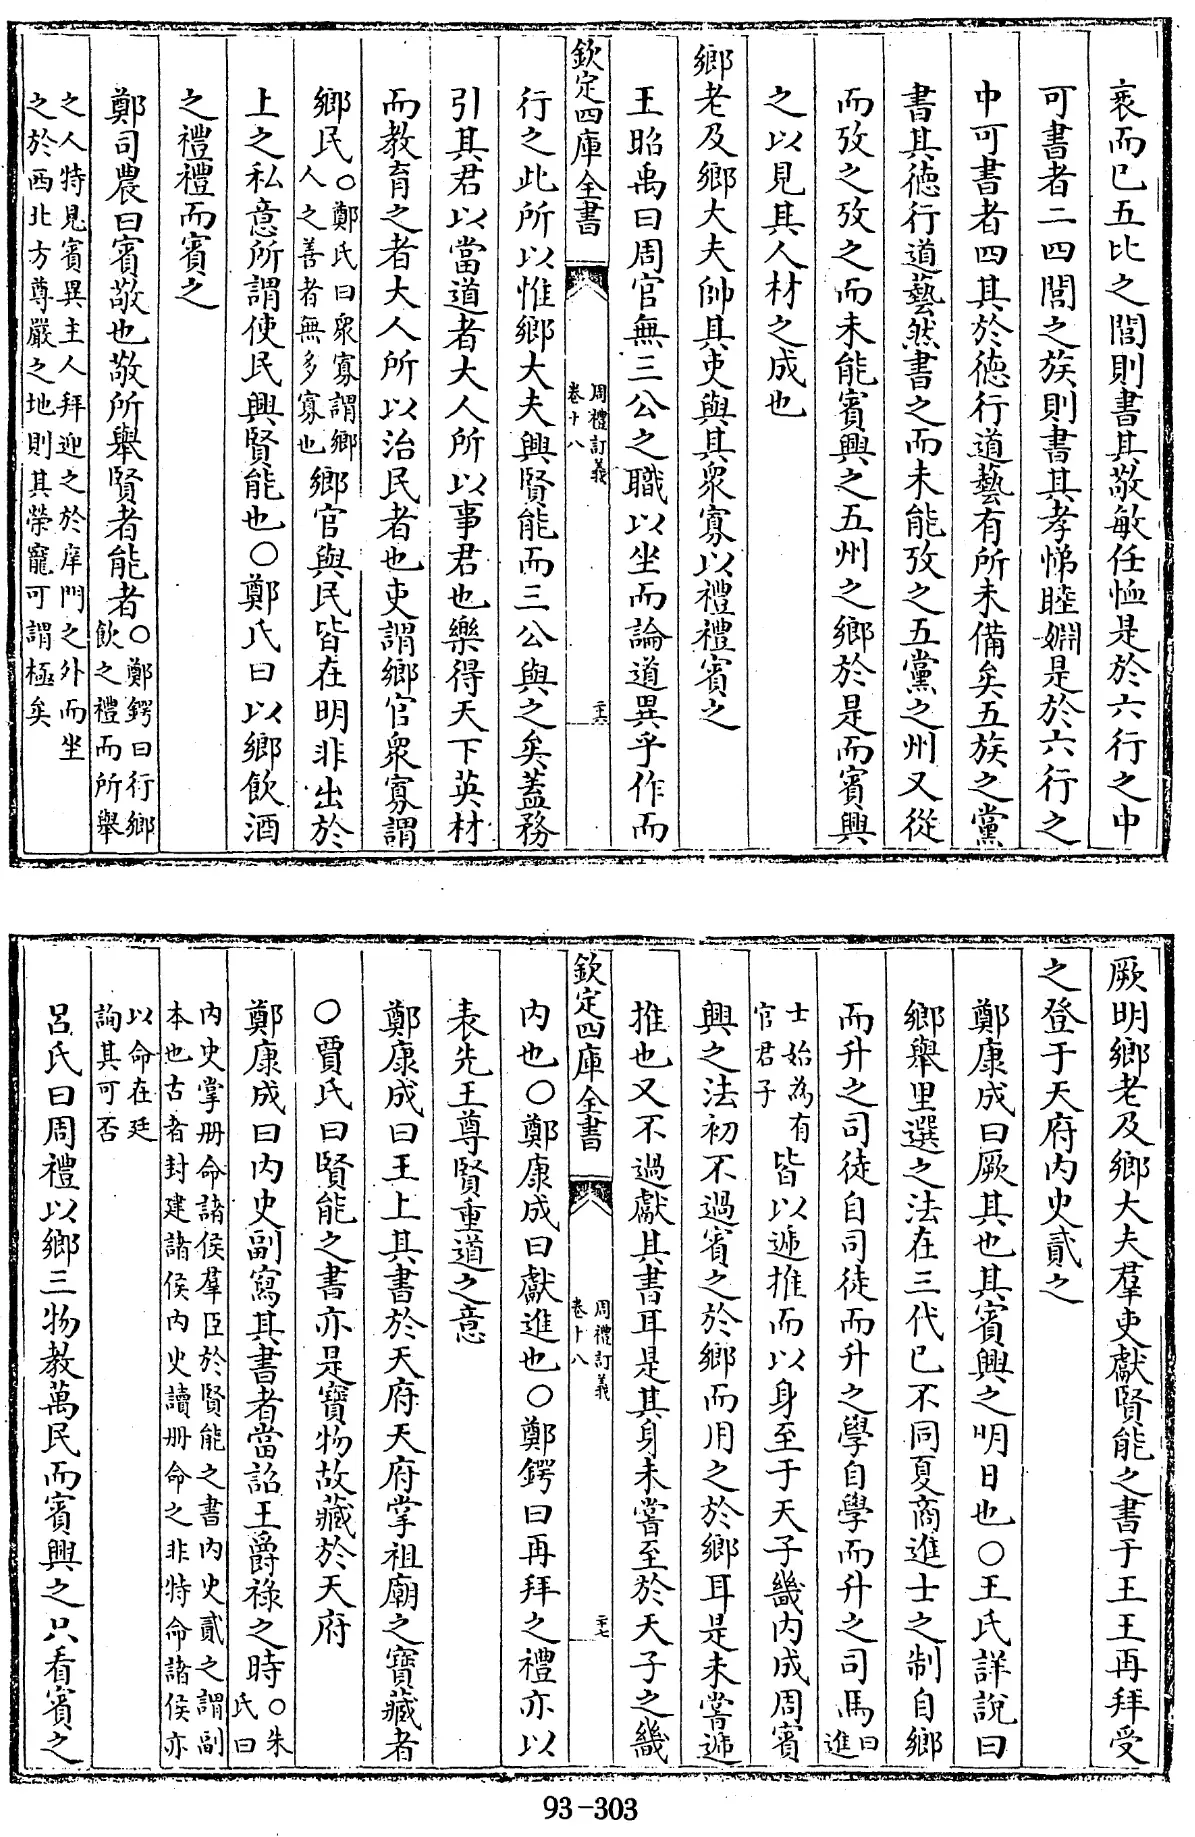 衷而已五比之閭則書其敬敏任恤是於六行之中
可書者二四閭之族則書其孝悌睦婣是於六行之
中可書者四其於徳行道藝有所未備矣五族之黨
書其徳行道藝然書之而未能攷之五黨之州又從
而攷之攷之而未能賔興之五州之鄉於是而賔興
之以見其人材之成也
鄉老及鄉大夫帥其吏與其衆寡以禮禮賔之
王昭禹曰周官無三公之職以坐而論道異乎作而
欽定四庫全書 周禮訂義 卷十八 二十六
行之此所以惟鄉大夫興賢能而三公與之矣蓋務
引其君以當道者大人所以事君也樂得天下英材
而教育之者大人所以治民者也吏謂鄉官衆寡謂
鄉民○鄭氏曰衆寡謂鄉人之善者無多寡也鄉官與民皆在明非出於
上之私意所謂使民興賢能也○鄭氏曰以鄉飲酒
之禮禮而賔之
鄭司農曰賔敬也敬所舉賢者能者○鄭鍔曰行鄉飲之禮而所舉
之人特見賔異主人拜迎之於庠門之外而坐
之於西北方尊嚴之地則其榮寵可謂極矣
厥明鄉老及鄉大夫羣吏獻賢能之書于王王再拜受
之登于天府内史貳之
鄭康成曰厥其也其賔興之明日也○王氏詳說曰
鄉舉里選之法在三代已不同夏商進士之制自鄉
而升之司徒自司徒而升之學自學而升之司馬曰進
士始為有官君子皆以遞推而以身至于天子畿内成周賔
興之法初不過賔之於鄉而用之於鄉耳是未嘗遞
推也又不過獻其書耳是其身未嘗至於天子之畿
欽定四庫全書 周禮訂義 卷十八 二十七
内也○鄭康成曰獻進也○鄭鍔曰再拜之禮亦以
表先王尊賢重道之意
鄭康成曰王上其書於天府天府掌祖廟之寶藏者
○賈氏曰賢能之書亦是寶物故藏於天府
鄭康成曰内史副寫其書者當詔王爵祿之時○朱氏曰
内史掌册命諸侯羣臣於賢能之書内史貳之謂副
本也古者封建諸侯内史讀册命之非特命諸侯亦
以命在廷
詢其可否
呂氏曰周禮以鄉三物教萬民而賔興之只看賔之
93-303